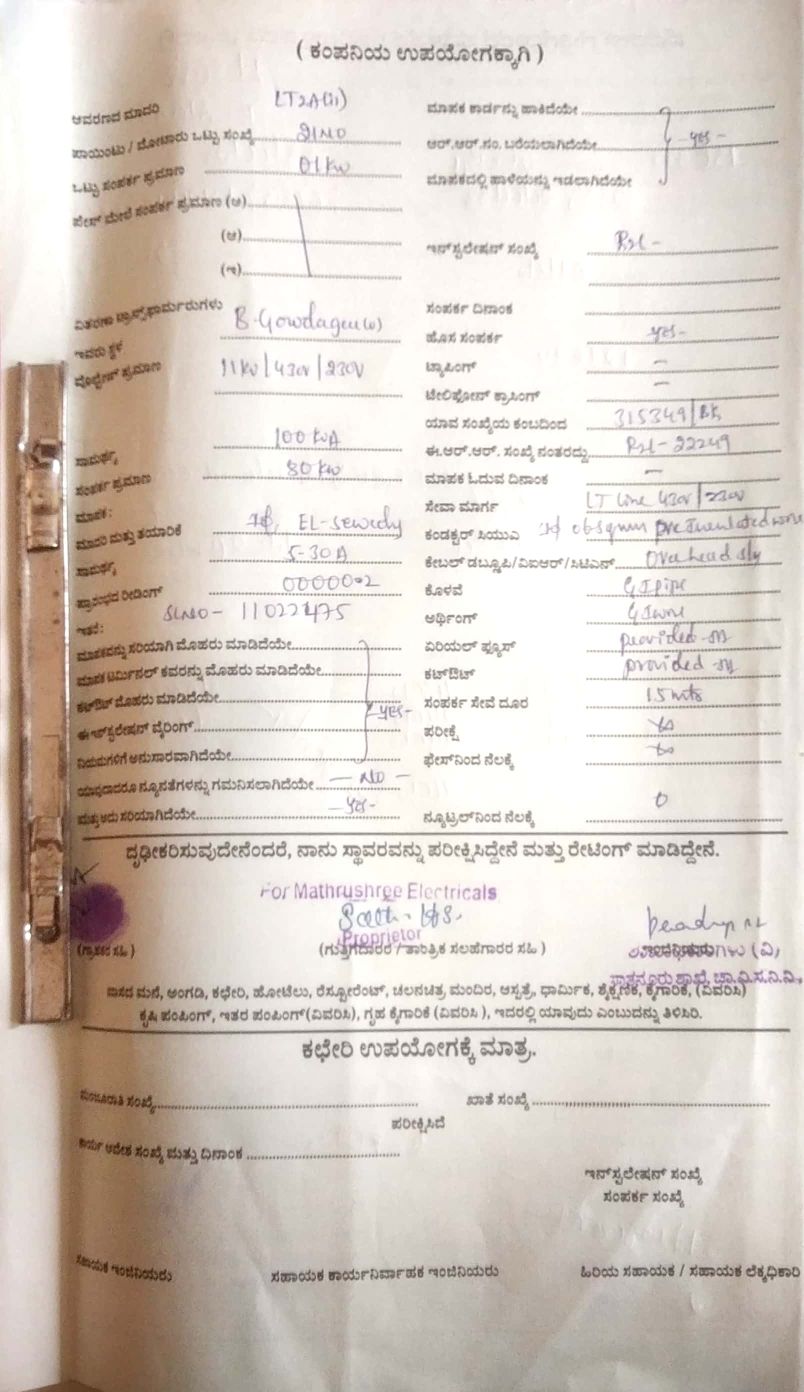 ( ಕಂಪನಿಯ ಉಪಯೋಗಕ್ಕಾಗಿ )
ಆವರಣದ ಮಾದರಿ LT2A(ii)
ಪಾಯಿಂಟು / ಮೋಟಾರು ಒಟ್ಟು ಸಂಖ್ಯೆ
ಒಟ್ಟು ಸಂಪರ್ಕ ಪ್ರಮಾಣ 01 KW
ಫೇಸ್ ಮೇಲೆ ಸಂಪರ್ಕ ಪ್ರಮಾಣ (ಅ)
(ಆ)
(ಇ)
ವಿತರಣಾ ಟ್ರಾನ್ಸ್‌ಫಾರ್ಮರುಗಳು
ಇವರು ಸ್ಥಳ
ವೊಲ್ಟೇಜ್ ಪ್ರಮಾಣ 11KV/430V/230V
ಸಾಮರ್ಥ್ಯ 100 KVA
ಸಂಪರ್ಕ ಪ್ರಮಾಣ 80 KW
ಮಾಪಕ:
ಮಾದರಿ ಮತ್ತು ತಯಾರಿಕೆ EL-Sewedy
ಸಾಮರ್ಥ್ಯ 5-30A
ಪ್ರಾರಂಭದ ರೀಡಿಂಗ್ 0000002
SLNO- 11022475
ಇತರೆ:
ಮಾಪಕವನ್ನು ಸರಿಯಾಗಿ ಮೊಹರು ಮಾಡಿದೆಯೇ
ಮಾಪಕ ಟರ್ಮಿನಲ್ ಕವರನ್ನು ಮೊಹರು ಮಾಡಿದೆಯೇ
ಕಟ್‌ಔಟ್ ಮೊಹರು ಮಾಡಿದೆಯೇ
-yes-
ಈ ಇನ್‌ಸ್ಟಲೇಷನ್ ವೈರಿಂಗ್
ನಿಯಮಗಳಿಗೆ ಅನುಸಾರವಾಗಿದೆಯೇ
ಯಾವುದಾದರೂ ನ್ಯೂನತೆಗಳನ್ನು ಗಮನಿಸಲಾಗಿದೆಯೇ - NO -
ಮತ್ತು ಅದು ಸರಿಯಾಗಿದೆಯೇ -yes-
ಮಾಪಕ ಕಾರ್ಡನ್ನು ಹಾಕಿದೆಯೇ
ಆರ್.ಆರ್.ನಂ. ಬರೆಯಲಾಗಿದೆಯೇ -yes-
ಮಾಪಕದಲ್ಲಿ ಹಾಳೆಯನ್ನು ಇಡಲಾಗಿದೆಯೇ
ಇನ್‌ಸ್ಟಲೇಷನ್ ಸಂಖ್ಯೆ
ಸಂಪರ್ಕ ದಿನಾಂಕ
ಹೊಸ ಸಂಪರ್ಕ yes-
ಟ್ಯಾಪಿಂಗ್ -
ಟೆಲಿಫೋನ್ ಕ್ರಾಸಿಂಗ್ -
ಯಾವ ಸಂಖ್ಯೆಯ ಕಂಬದಿಂದ 315349/
ಈ.ಆರ್.ಆರ್. ಸಂಖ್ಯೆ ನಂತರದ್ದು 22249
ಮಾಪಕ ಓದುವ ದಿನಾಂಕ -
ಸೇವಾ ಮಾರ್ಗ LT Line 430V/230V
ಕಂಡಕ್ಟರ್ ಸಿಯುಎ
ಕೇಬಲ್ ಡಬ್ಲೂಪಿ/ವಿಐಆರ್/ಸಿಟಿಎಸ್ Overhead
ಕೊಳವೆ GI pipe
ಅರ್ಥಿಂಗ್ GI wire
ಏರಿಯಲ್ ಫ್ಯೂಸ್ provided
ಕಟ್‌ಔಟ್ provided
ಸಂಪರ್ಕ ಸೇವೆ ದೂರ 15 mts
ಪರೀಕ್ಷೆ
ಫೇಸ್‌ನಿಂದ ನೆಲಕ್ಕೆ
ನ್ಯೂಟ್ರಲ್‌ನಿಂದ ನೆಲಕ್ಕೆ 0
ದೃಢೀಕರಿಸುವುದೇನೆಂದರೆ, ನಾನು ಸ್ಥಾವರವನ್ನು ಪರೀಕ್ಷಿಸಿದ್ದೇನೆ ಮತ್ತು ರೇಟಿಂಗ್ ಮಾಡಿದ್ದೇನೆ.
For Mathrushree Electricals
Proprietor
(ಗ್ರಾಹಕರ ಸಹಿ )
(ಗುತ್ತಿಗೆದಾರರ / ತಾಂತ್ರಿಕ ಸಲಹೆಗಾರರ ಸಹಿ )
ವಾಸದ ಮನೆ, ಅಂಗಡಿ, ಕಛೇರಿ, ಹೋಟೆಲು, ರೆಸ್ಟೋರೆಂಟ್, ಚಲನಚಿತ್ರ ಮಂದಿರ, ಆಸ್ಪತ್ರೆ, ಧಾರ್ಮಿಕ, ಶೈಕ್ಷಣಿಕ, ಕೈಗಾರಿಕೆ, (ವಿವರಿಸಿ)
ಕೃಷಿ ಪಂಪಿಂಗ್, ಇತರ ಪಂಪಿಂಗ್(ವಿವರಿಸಿ), ಗೃಹ ಕೈಗಾರಿಕೆ (ವಿವರಿಸಿ ), ಇದರಲ್ಲಿ ಯಾವುದು ಎಂಬುದನ್ನು ತಿಳಿಸಿರಿ.
ಕಛೇರಿ ಉಪಯೋಗಕ್ಕೆ ಮಾತ್ರ.
ಮಂಜೂರಾತಿ ಸಂಖ್ಯೆ
ಖಾತೆ ಸಂಖ್ಯೆ
ಪರೀಕ್ಷಿಸಿದೆ
ಕಾರ್ಯ ಆದೇಶ ಸಂಖ್ಯೆ ಮತ್ತು ದಿನಾಂಕ
ಇನ್‌ಸ್ಟಲೇಷನ್ ಸಂಖ್ಯೆ
ಸಂಪರ್ಕ ಸಂಖ್ಯೆ
ಸಹಾಯಕ ಇಂಜಿನಿಯರು
ಸಹಾಯಕ ಕಾರ್ಯನಿರ್ವಾಹಕ ಇಂಜಿನಿಯರು
ಹಿರಿಯ ಸಹಾಯಕ / ಸಹಾಯಕ ಲೆಕ್ಕಧಿಕಾರಿ